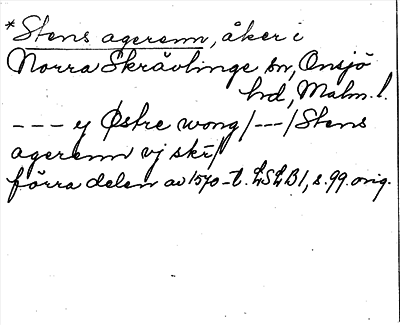 *Stens agerenn, åker i
Norra Skrävlinge sn, Onsjö
hd, Malm. l.
--- y Østre wong/---/Stens
agerenn vj skr/
förra delen av 1570-t. LSLB1, s. 99. orig.